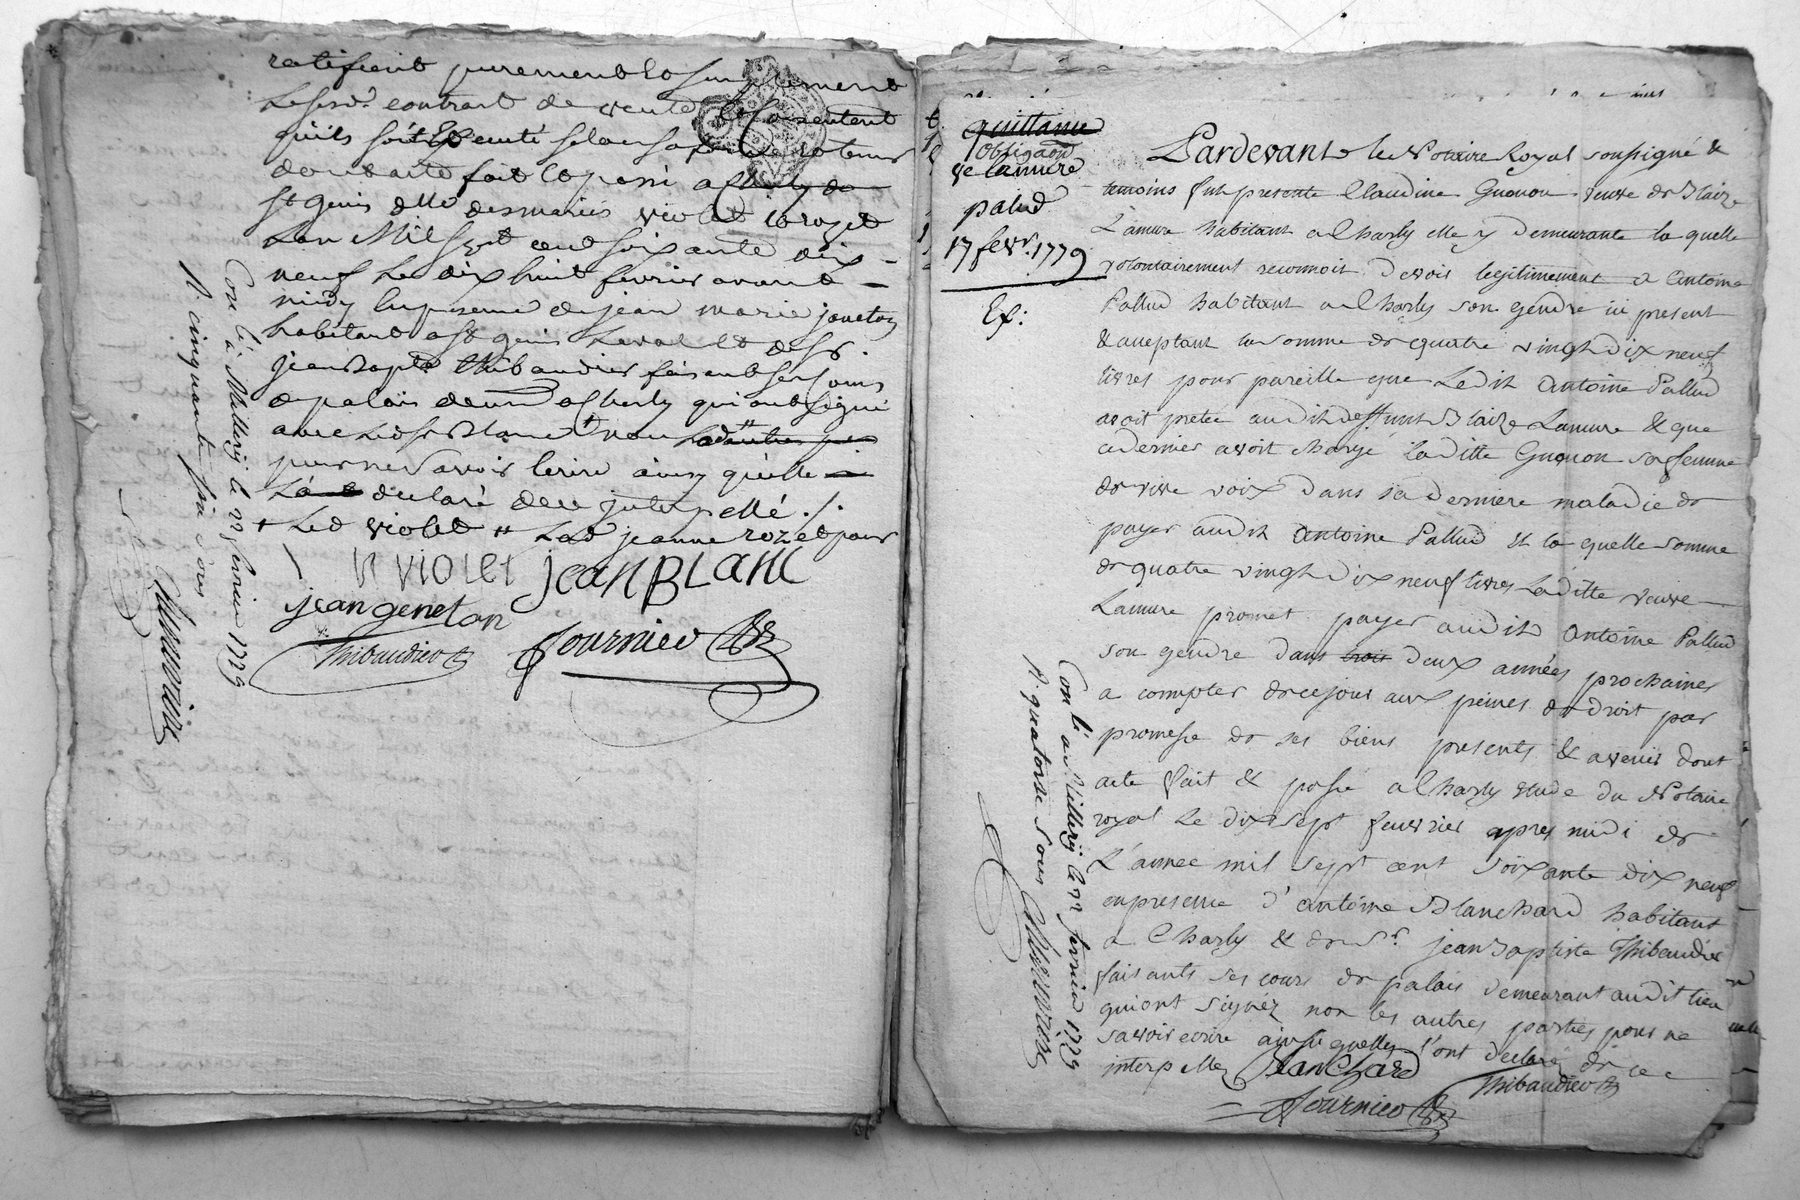 ratifient purement et simplement
le susd. contrat de vente et consentent
qu'ils soit executé selon sa forme et teneur
dont acte fait et passé a Charly
st genis
l'an Mil sept cent soixante dix
neuf le dix huit fevrier avant
midy en presence de jean marie
habitant a st genis Laval et de sr.
jean bapte. thibaudier faisant ses cours
de palais demt. a Charly qui ont signé
avec led. sr Blanc + non
pour ne savoir ecrire ainsy qu'elle
l'a declaré de ce interpellé ./.
+ led violet # lad jeanne rozet pour
violet jean BLANC
jean genetan
Thibaudier fournier
Con. lé a Millery le 22 fevrier 1779
R. cinquante six sous
quittance
obligaon
de lamure
palud
17 fevr. 1779
Ex:
Pardevant le Notaire Royal soussigné &
temoins fut presente Claudine Guonon veuve de Blaize
Lamure habitant a Charly elle y demeurante la quelle
volontairement reconnoit devoir legitimement a antoine
Pallud habitant a Charly son gendre ici present
& acceptant la somme de quatre vingt dix neuf
livres pour pareille que ledit antoine Pallud
avoit pretée audit deffunt Blaize Lamure & que
ce dernier avoit chargé laditte Guonon sa femme
de vive voix dans sa derniere maladie de
payer audit antoine Pallud & la quelle somme
de quatre vingt dix neuf livres laditte veuve
Lamure promet payer audit antoine Pallud
son gendre dans trois deux années prochaines
a compter de ce jour aux peines de droit par
promesse de ses biens presents & avenir dont
acte fait & passé a Charly etude du Notaire
royal le dix sept feuvrier apres midi de
L'année mil sept cent soixante dix neuf
en presence d'antoine Blanchard habitant
a Charly & de sr. jean baptiste Thibaudier
faisants ses cours de palais demeurant audit lieu
qui ont signéz non les autres parties pour ne
savoir ecrire ainsi quelles l'ont declaré de ce
interpellez Blanchard
Thibaudier
fournier
Con. lé a Millery le 22 fevrier 1779
R. quatorse sous